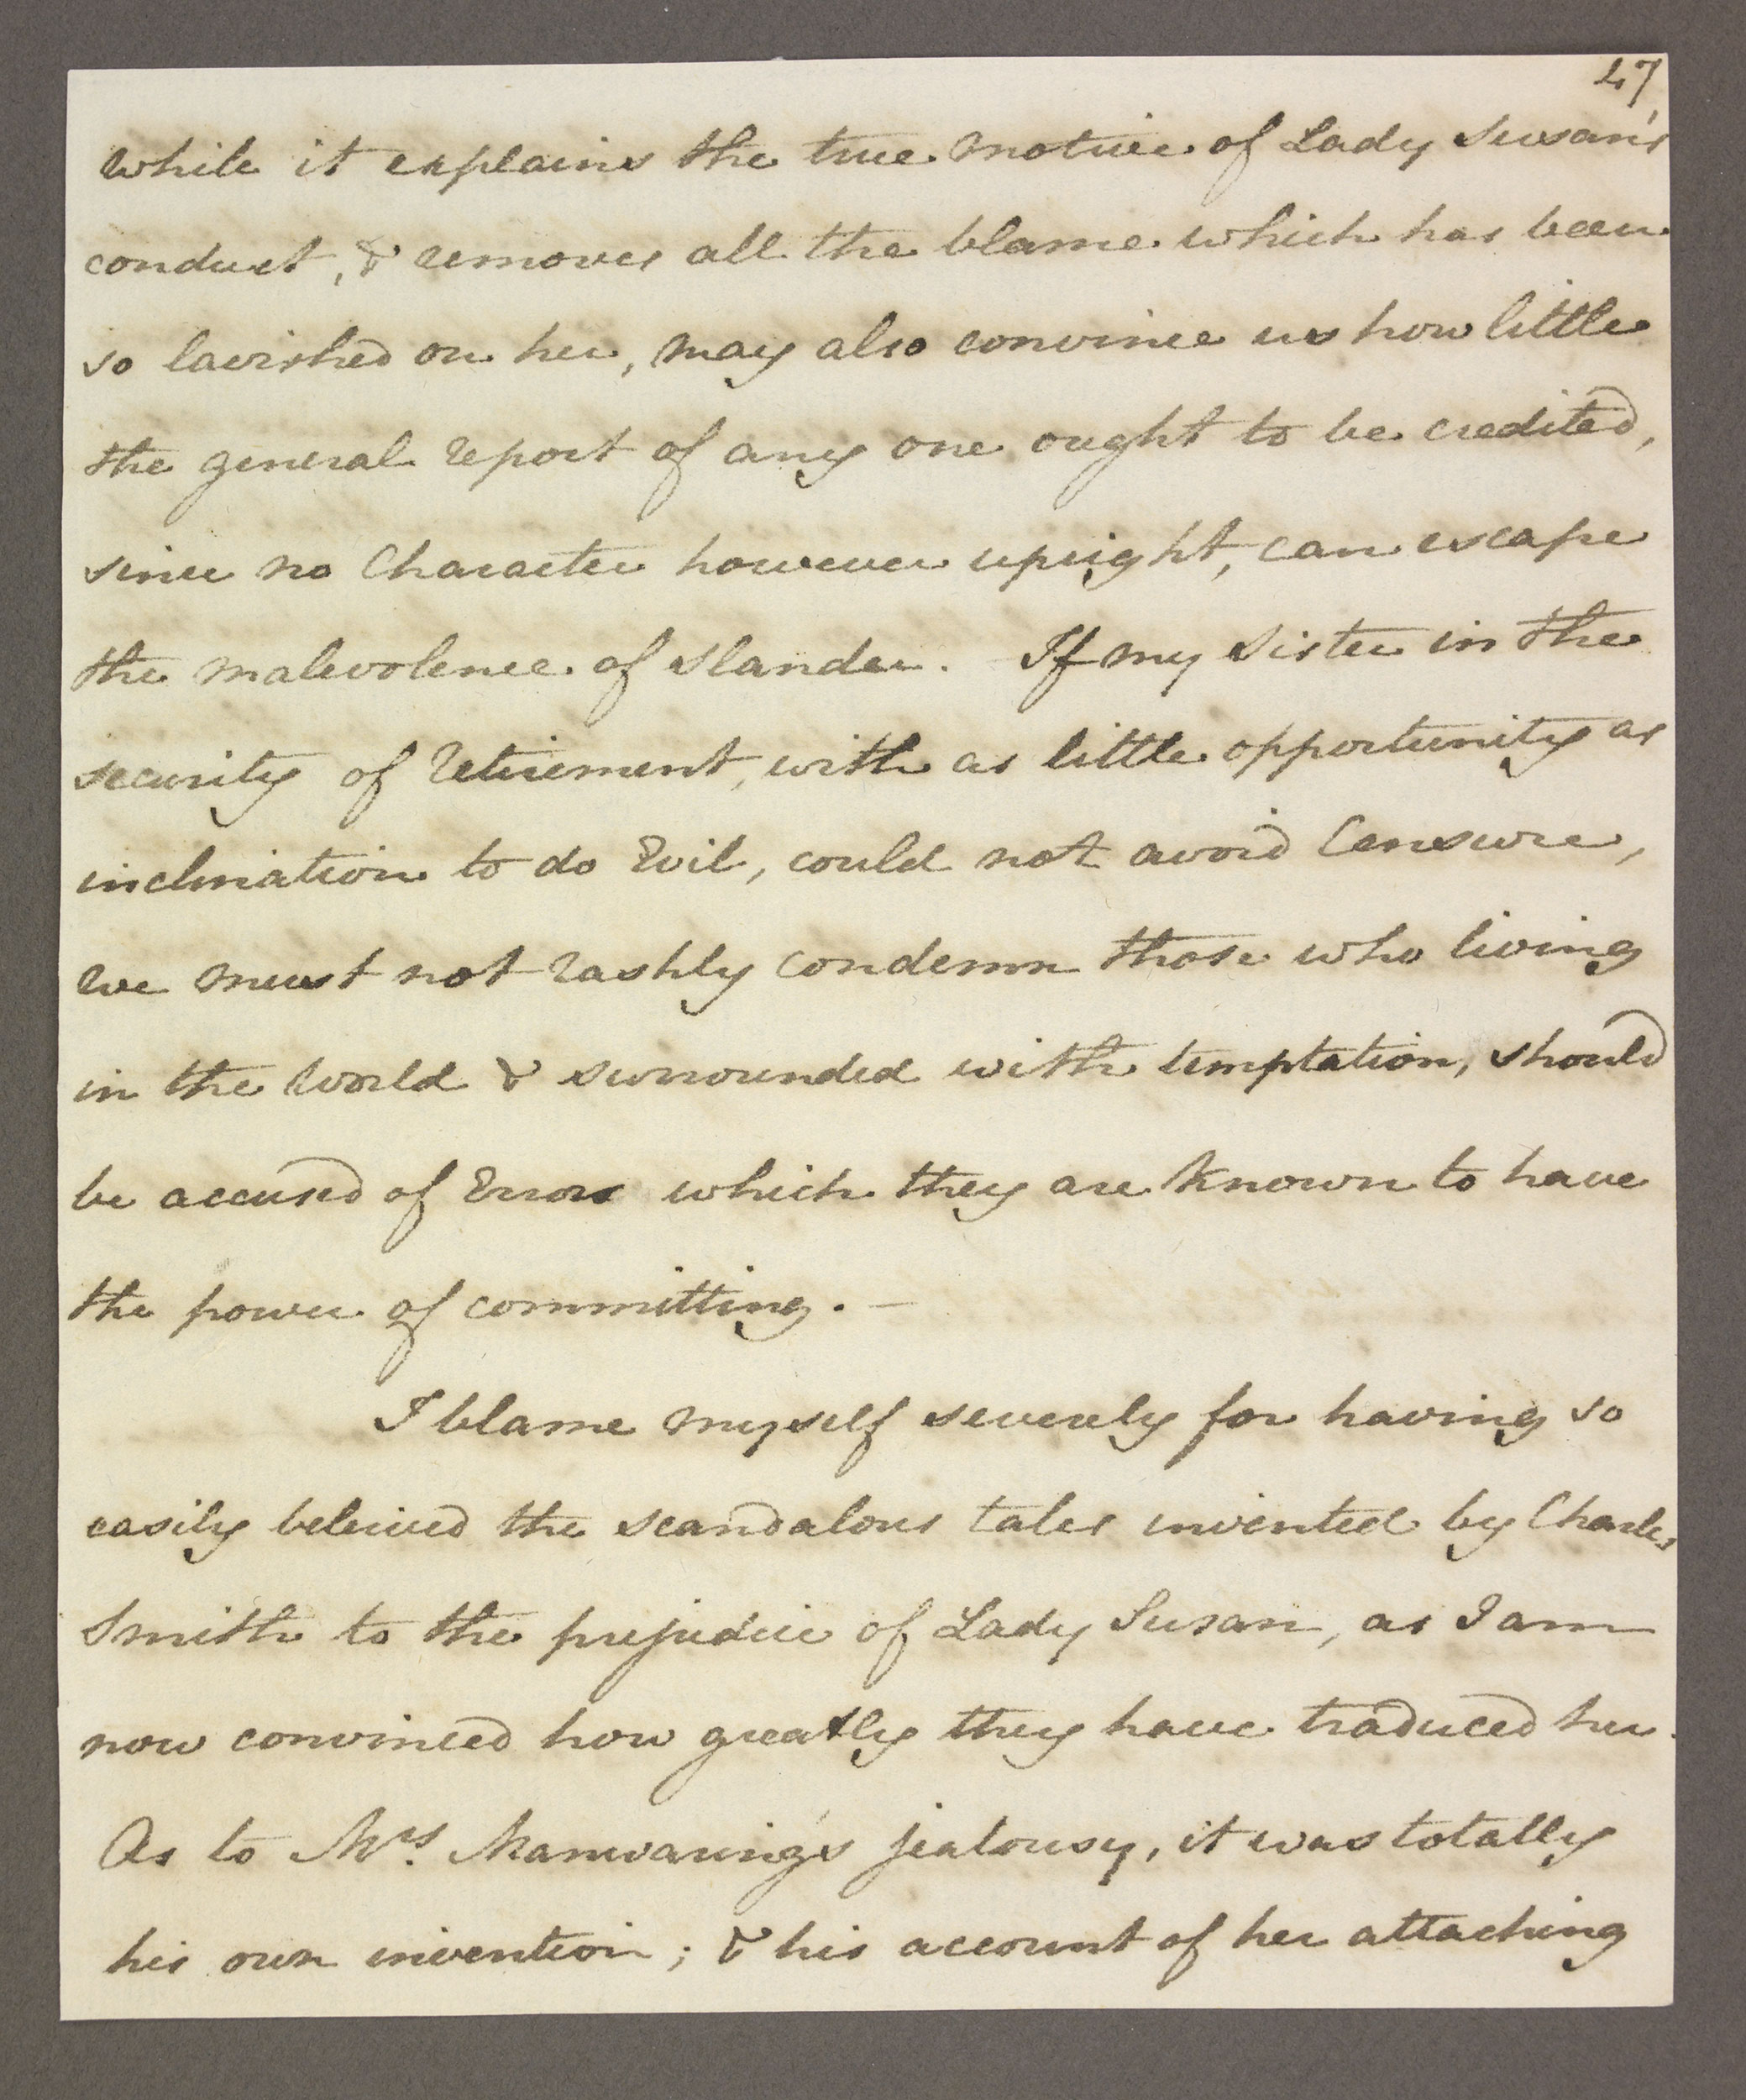 47
while it explains the true motive of Lady Susan's
conduct, & removes all the blame which has been
so lavished on her, may also convince us how little
the general report of any one ought to be credited,
since no Character however upright, can escape
the malevolence of Slander. If my Sister in the
security of retirement, with as little opportunity as
inclination to do Evil, could not avoid Censure,
we must not rashly condemn those who living
in the World & surrounded with temptation, should
be accused of Errors which they are known to have
the power of committing. —
I blame myself severely for having so
easily beleived the scandalous tales invented by Charles
Smith to the prejudice of Lady Susan, as I am
now convinced how greatly they have traduced her.
As to Mrs. Manwaring's jealousy, it was totally
his own invention; & his account of her attaching